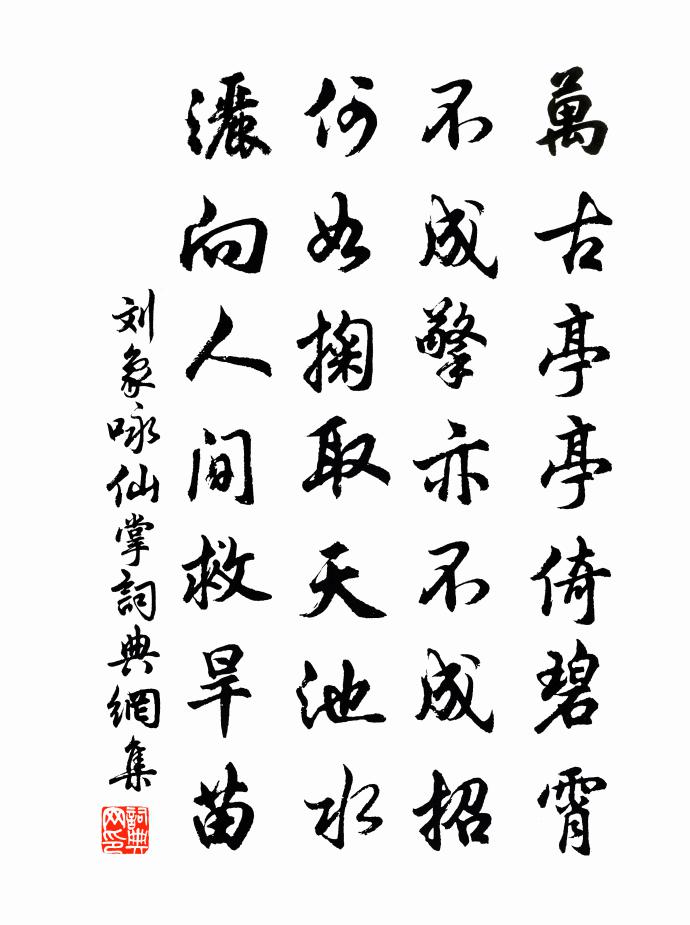 萬古亭亭倚碧霄
不成擎亦不成招
何如掬取天池水
灑向人間救旱苗
刘象咏仙掌詞典網集
詞典网印